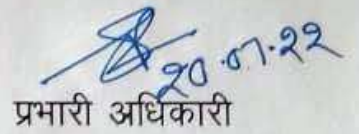 20.07.22
प्रभारी अधिकारी